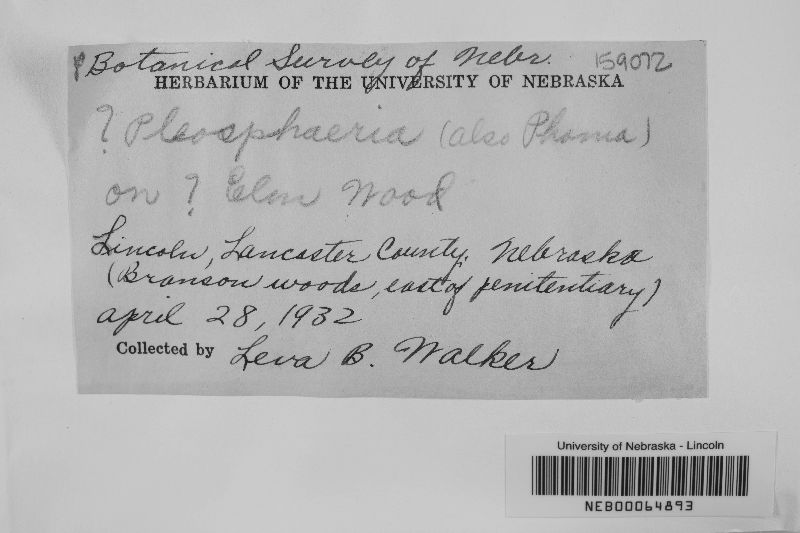 Botanical Survey of Nebr. 159072
HERBARIUM OF THE UNIVERSITY OF NEBRASKA
? Pleosphaeria (also Phoma)
on ? Elm Wood
Lincoln, Lancaster County. Nebraska
(Branson woods, east of penitentiary)
april 28, 1932
Collected by Leva B. Walker
University of Nebraska - Lincoln
NEB00064893